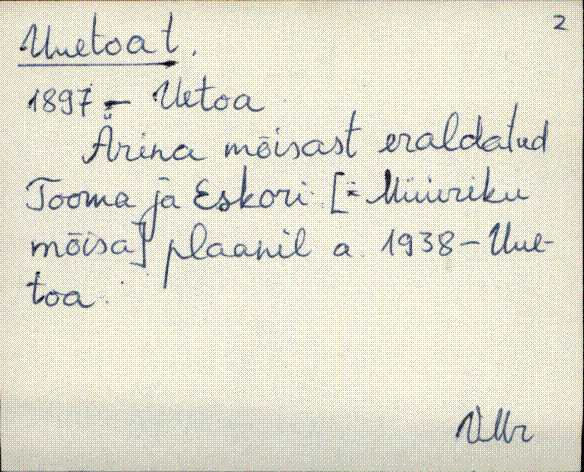 2
Uuetoa t.
1897 – Uetoa
Ärina mõisast eraldatud
Tooma ja Eskori [= Müüriku
mõisa] plaanil a 1938 – Uue-
toa
VMr